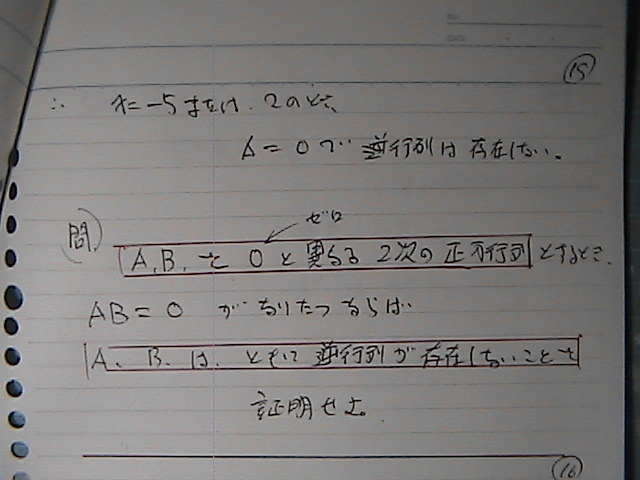 ⑮
∴ x=-5 または、2のとき、
Δ=0で 逆行列は存在しない。
ゼロ
問) A、B、を 0と異なる 2次の正方行列とするとき、
AB=0 がなりたつならば
A、B、は、ともに逆行列が存在しないことを
証明せよ。
⑯